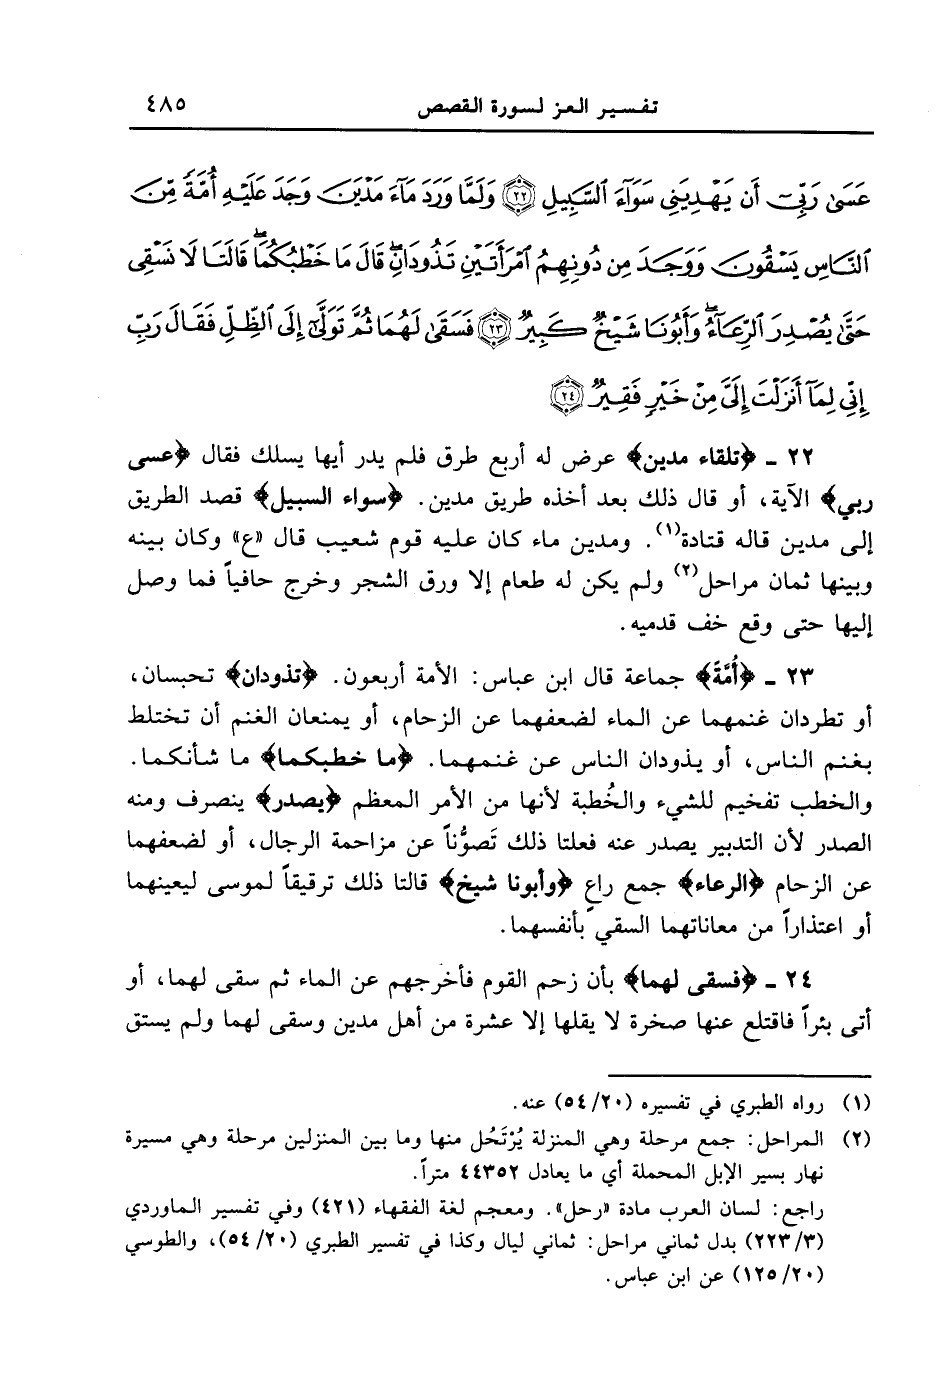 تفسير العز لسورة القصص ٤٨٥
عَسَىٰ رَبِّىٓ أَن يَهْدِيَنِى سَوَآءَ ٱلسَّبِيلِ ﴿٢٢﴾ وَلَمَّا وَرَدَ مَآءَ مَدْيَنَ وَجَدَ عَلَيْهِ أُمَّةً مِّنَ
ٱلنَّاسِ يَسْقُونَ وَوَجَدَ مِن دُونِهِمُ ٱمْرَأَتَيْنِ تَذُودَانِۖ قَالَ مَا خَطْبُكُمَاۖ قَالَتَا لَا نَسْقِى
حَتَّىٰ يُصْدِرَ ٱلرِّعَآءُۖ وَأَبُونَا شَيْخٌ كَبِيرٌ ﴿٢٣﴾ فَسَقَىٰ لَهُمَا ثُمَّ تَوَلَّىٰٓ إِلَى ٱلظِّلِّ فَقَالَ رَبِّ
إِنِّى لِمَآ أَنزَلْتَ إِلَىَّ مِنْ خَيْرٍ فَقِيرٌ ﴿٢٤﴾
٢٢ ـ ﴿تلقاء مدين﴾ عرض له أربع طرق فلم يدر أيها يسلك فقال ﴿عسى
ربي﴾ الآية، أو قال ذلك بعد أخذه طريق مدين. ﴿سواء السبيل﴾ قصد الطريق
إلى مدين قاله قتادة(١). ومدين ماء كان عليه قوم شعيب قال «ع» وكان بينه
وبينها ثمان مراحل(٢) ولم يكن له طعام إلا ورق الشجر وخرج حافياً فما وصل
إليها حتى وقع خف قدميه.
٢٣ ـ ﴿أُمَّةً﴾ جماعة قال ابن عباس: الأمة أربعون. ﴿تذودان﴾ تحبسان،
أو تطردان غنمهما عن الماء لضعفهما عن الزحام، أو يمنعان الغنم أن تختلط
بغنم الناس، أو يذودان الناس عن غنمهما. ﴿ما خطبكما﴾ ما شأنكما.
والخطب تفخيم للشيء والخُطبة لأنها من الأمر المعظم ﴿يصدر﴾ ينصرف ومنه
الصدر لأن التدبير يصدر عنه فعلتا ذلك تَصوُّناً عن مزاحمة الرجال، أو لضعفهما
عن الزحام ﴿الرعاء﴾ جمع راعٍ ﴿وأبونا شيخ﴾ قالتا ذلك ترقيقاً لموسى ليعينهما
أو اعتذاراً من معاناتهما السقي بأنفسهما.
٢٤ ـ ﴿فسقى لهما﴾ بأن زحم القوم فأخرجهم عن الماء ثم سقى لهما، أو
أتى بئراً فاقتلع عنها صخرة لا يقلها إلا عشرة من أهل مدين وسقى لهما ولم يستق
(١) رواه الطبري في تفسيره (٥٤/٢٠) عنه.
(٢) المراحل: جمع مرحلة وهي المنزلة يُرْتَحُل منها وما بين المنزلين مرحلة وهي مسيرة
نهار بسير الإبل المحملة أي ما يعادل ٤٤٣٥٢ متراً.
راجع: لسان العرب مادة «رحل». ومعجم لغة الفقهاء (٤٢١) وفي تفسير الماوردي
(٢٢٣/٣) بدل ثماني مراحل: ثماني ليال وكذا في تفسير الطبري (٥٤/٢٠)، والطوسي
(١٢٥/٢٠) عن ابن عباس.